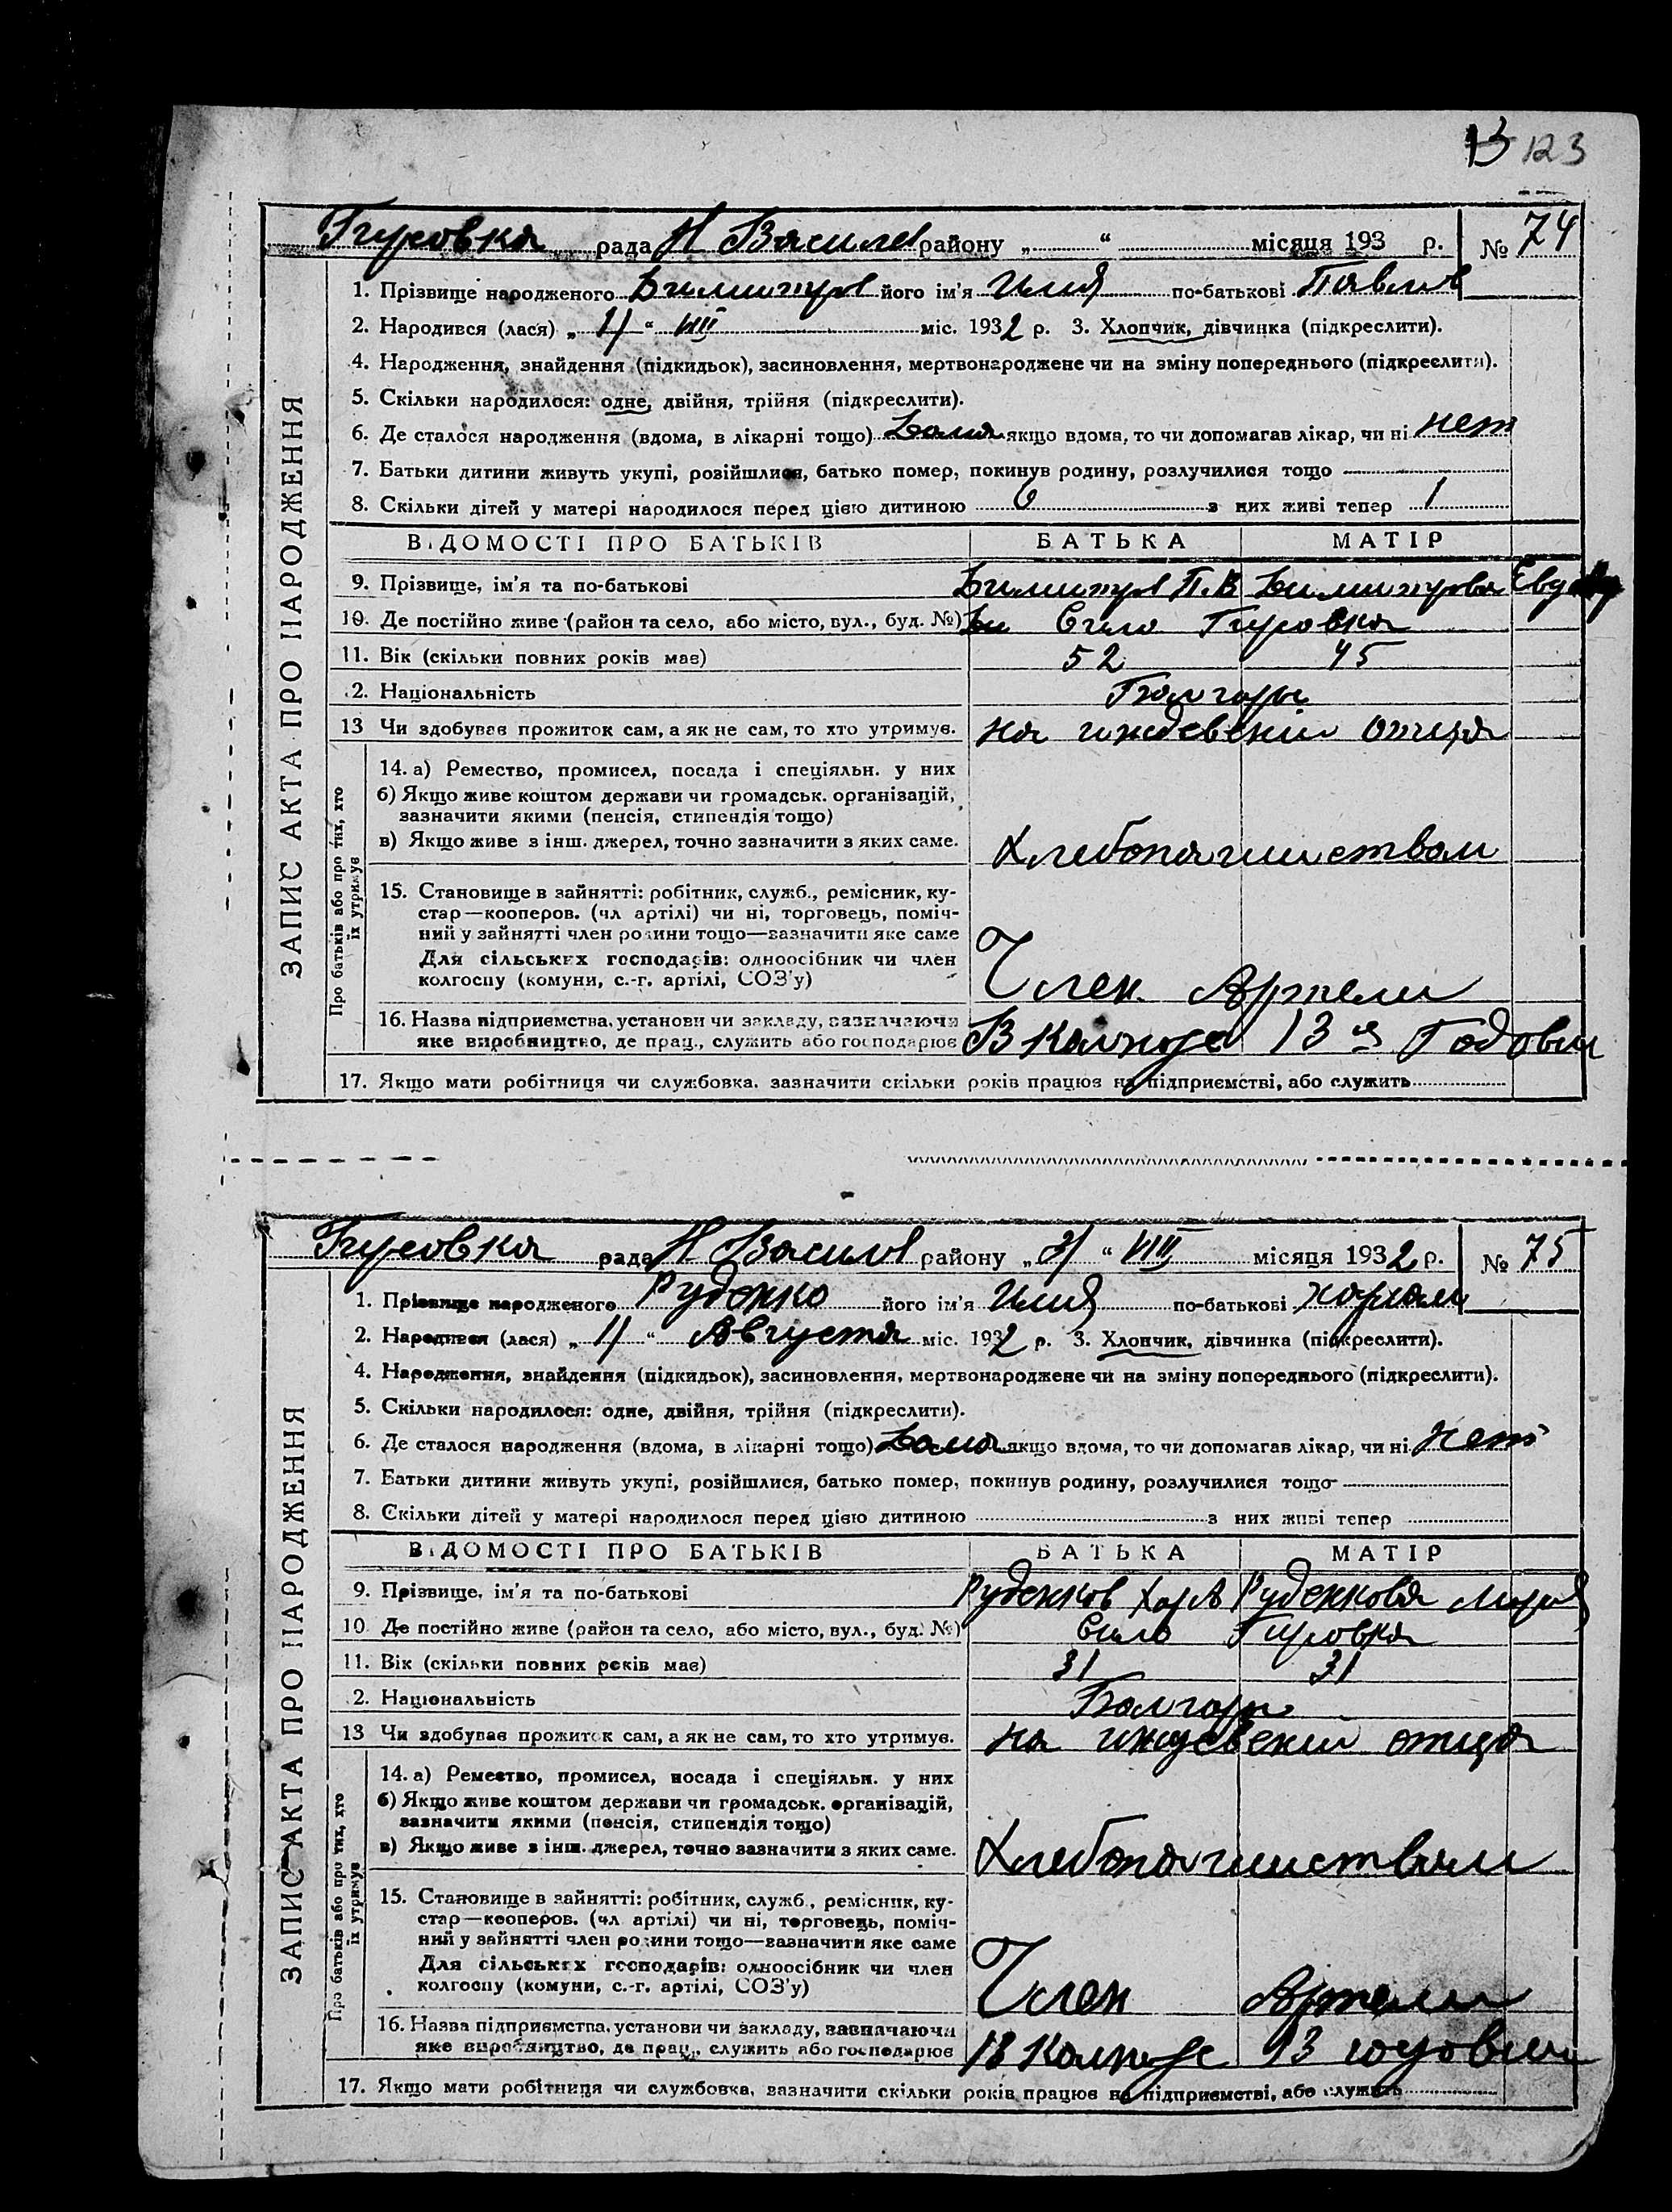 13 123
Гировка рада Н Василев району „ “ місяця 193 р. № 74
1. Прізвище народженого Димитров його ім'я Илия по-батькові Павлов
2. Народився (лася) „ 11 “ VIII міс. 1932 р. 3. Хлопчик, дівчинка (підкреслити).
4. Народження, знайдення (підкидьок), засиновлення, мертвонароджене чи на зміну попереднього (підкреслити).
5. Скільки народилося: одне, двійня, трійня (підкреслити).
6. Де сталося народження (вдома, в лікарні тощо) Дома якщо вдома, то чи допомагав лікар, чи ні нет
7. Батьки дитини живуть укупі, розійшлися, батько помер, покинув родину, розлучилися тощо
8. Скільки дітей у матері народилося перед цією дитиною 6 з них живі тепер 1
ВІДОМОСТІ ПРО БАТЬКІВ БАТЬКА МАТІР
9. Прізвище, ім'я та по-батькові Димитров П. В Димитрова Евд
10. Де постійно живе (район та село, або місто, вул., буд. №) Село Гировка
11. Вік (скільки повних років має) 52 45
2. Національність Болгоры
13 Чи здобував прожиток сам, а як не сам, то хто утримує. на иждевении отца
14. а) Ремество, промисел, посада і спеціяльн. у них
б) Якщо живе коштом держави чи громадськ. організацій,
зазначити якими (пенсія, стипендія тощо)
в) Якщо живе з інш. джерел, точно зазначити з яких саме. Хлебопашиством
15. Становище в зайнятті: робітник, служб., ремісник, ку-
стар—кооперов. (чл артілі) чи ні, торговець, поміч-
ний у зайнятті член родини тощо—зазначити яке саме
Для сільських господарів: одноосібник чи член
колгоспу (комуни, с.-г. артілі, СОЗ'у) Член Артели
16. Назва підприємства, установи чи закладу, зазначаючи
яке виробництво, де прац., служить або господарює В Колхозе 13 я Годовщ
17. Якщо мати робітниця чи службовка, зазначити скільки років працює на підприємстві, або служить
ЗАПИС АКТА ПРО НАРОДЖЕННЯ
Про батьків або про тих, хто
їх утримує
Гировка рада Н Василев району „ 31 “ VIII місяця 1932 р. № 75
1. Прізвище народженого Руденко його ім'я Илия по-батькові Харлам
2. Народився (лася) „ 11 “ Августа міс. 1932 р. 3. Хлопчик, дівчинка (підкреслити).
4. Народження, знайдення (підкидьок), засиновлення, мертвонароджене чи на зміну попереднього (підкреслити).
5. Скільки народилося: одне, двійня, трійня (підкреслити).
6. Де сталося народження (вдома, в лікарні тощо) Дома якщо вдома, то чи допомагав лікар, чи ні нет
7. Батьки дитини живуть укупі, розійшлися, батько помер, покинув родину, розлучилися тощо
8. Скільки дітей у матері народилося перед цією дитиною з них живі тепер
ВІДОМОСТІ ПРО БАТЬКІВ БАТЬКА МАТІР
9. Прізвище, ім'я та по-батькові Руденков Руденкова Мария
10. Де постійно живе (район та село, або місто, вул., буд. №) Село Гировка
11. Вік (скільки повних років має) 31 31
2. Національність Болгоры
13 Чи здобував прожиток сам, а як не сам, то хто утримує. на иждевении отца
14. а) Ремество, промисел, посада і спеціяльн. у них
б) Якщо живе коштом держави чи громадськ. організацій,
зазначити якими (пенсія, стипендія тощо)
в) Якщо живе з інш. джерел, точно зазначити з яких саме. Хлебопашиством
15. Становище в зайнятті: робітник, служб., ремісник, ку-
стар—кооперов. (чл артілі) чи ні, торговець, поміч-
ний у зайнятті член родини тощо—зазначити яке саме
Для сільських господарів: одноосібник чи член
колгоспу (комуни, с.-г. артілі, СОЗ'у) Член Артели
16. Назва підприємства, установи чи закладу, зазначаючи
яке виробництво, де прац., служить або господарює В Колхозе 13 годовщ
17. Якщо мати робітниця чи службовка, зазначити скільки років працює на підприємстві, або служить
ЗАПИС АКТА ПРО НАРОДЖЕННЯ
Про батьків або про тих, хто
їх утримує